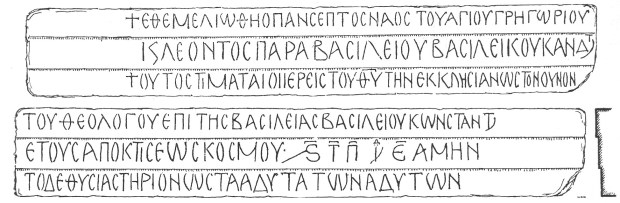 +ΕΘΕΜΕΛΙΩΘΗΟΠΑΝCΕΠΤΟCΝΑΟCΤΟΥΑΓΙΟΥΓΡΗΓΩΡΙΟΥ
ΙSΛΕΟΝΤΟCΠΑΡΑΒΑCΙΛΕΙΟΥΒΑCΙΛΕΙΚΟΥΚΑΝΔΥ
+ΟΥΤΟCΤΙΜΑΤΑΙΟΙΕΡΕΙCΤΟΥΘΥΤΗΝΕΚΚΛΗCΙΑΝΩCΤΟΝΟΥΝΟΝ
ΤΟΥΘΕΟΛΟΓΟΥΕΠΙΤΗCΒΑCΙΛΕΙΑCΒΑCΙΛΕΙΟΥΚΩΝCΤΑΝΤ
ΕΤΟΥCΑΠΟΚΤΙCΕΩCΚΟCΜΟΥ· ͵Ϛ Τ Π Ι Ε ΑΜΗΝ
ΤΟΔΕΘΥCΙΑCΤΗΡΙΟΝΩCΤΑΑΔΥΤΑΤΩΝΑΔΥΤΩΝ